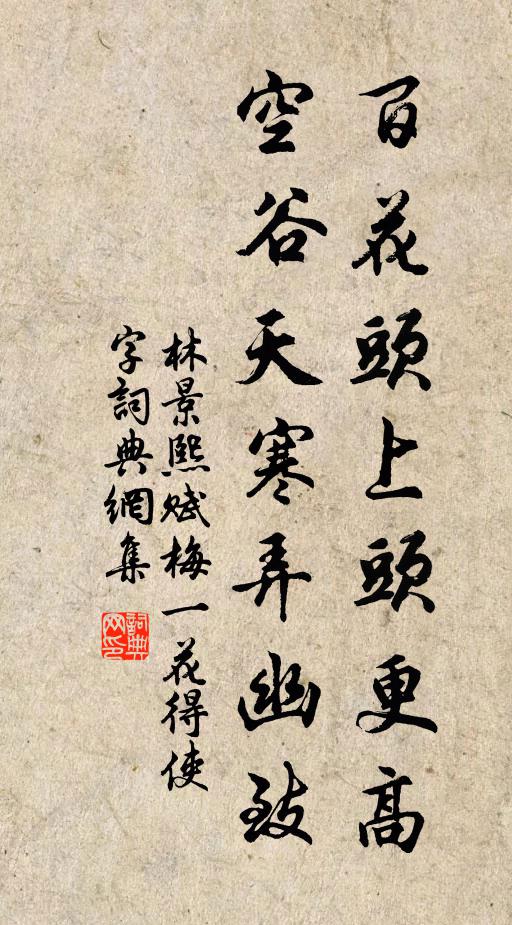 百花頭上頭更高
空谷天寒弄幽致
林景熙賦梅一花得使
字詞典網集
詞典
网印